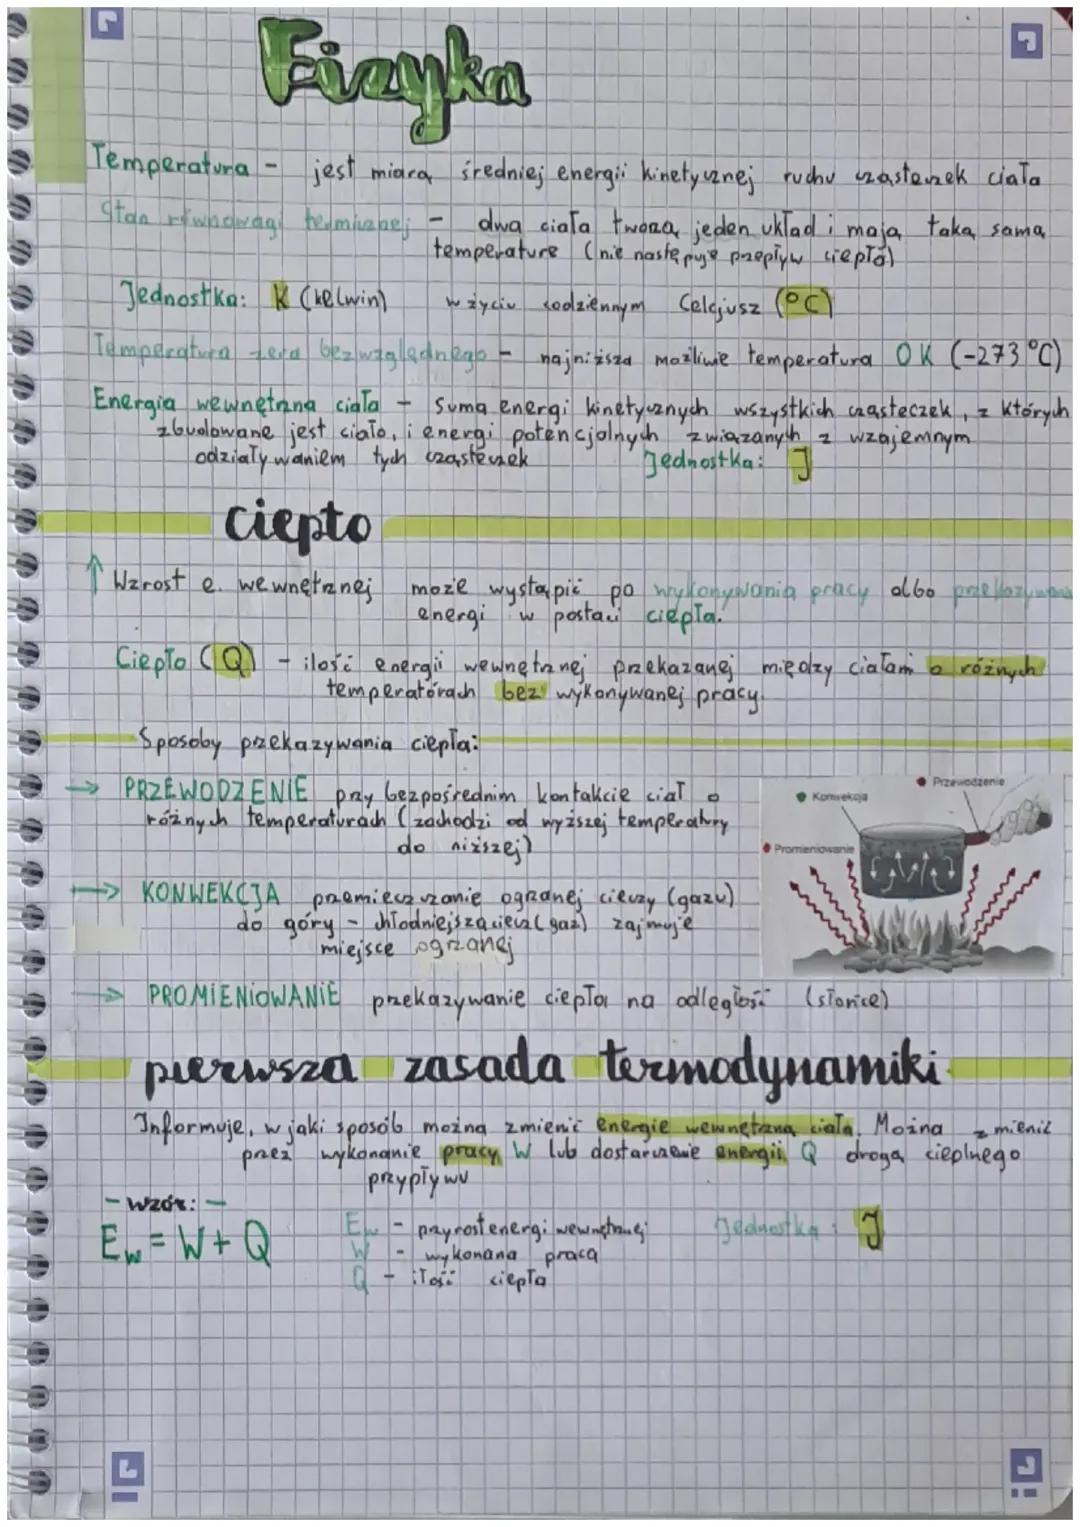 Fizyka
Temperatura - jest miarą średniej energii kinetycznej ruchu cząsteczek ciała
Stan równowagi termicznej - dwa ciała tworzą jeden układ i mają taką samą
temperature (nie następuje przepływ ciepła)
Jednostka: K (kelwin) w życiu codziennym Celcjusz (°C)
Temperatura zera bezwzględnego - najniższa możliwie temperatura 0 K (-273 °C)
Energia wewnętrzna ciała - suma energi kinetycznych wszystkich cząsteczek, z których
zbudowane jest ciało, i energi potencjalnych związanych z wzajemnym
odziaływaniem tych cząsteczek Jednostka: J
ciepło
↑ Wzrost e. wewnętrznej może wystąpić po wykonywania pracy albo
energi w postaci ciepła.
Ciepło (Q) - ilość energii wewnętrznej przekazanej między ciałami o różnych
temperatórach bez wykonywanej pracy.
Sposoby przekazywania ciepła:
→ PRZEWODZENIE przy bezpośrednim kontakcie ciał o
różnych temperaturach (zachodzi od wyższej temperatury
do niższej)
Przewodzenie
Konwekcja
Promieniowanie
→ KONWEKCJA przemieszczanie ogrzanej cieczy (gazu)
do góry - chłodniejsza ciecz (gaz) zajmuje
miejsce ogrzanej
→ PROMIENIOWANIE przekazywanie ciepła na odległość (słońce)
pierwsza zasada termodynamiki
Informuje, w jaki sposób można zmienić energie wewnętrzną ciała. Można zmienić
przez wykonanie pracy W lub dostarczenie energii Q drogą cieplnego
przypływu
- wzór: -
E_w = W + Q
E_w - przyrost energi wewnętrznej Jednostka: J
W - wykonana praca
Q - ilość ciepła